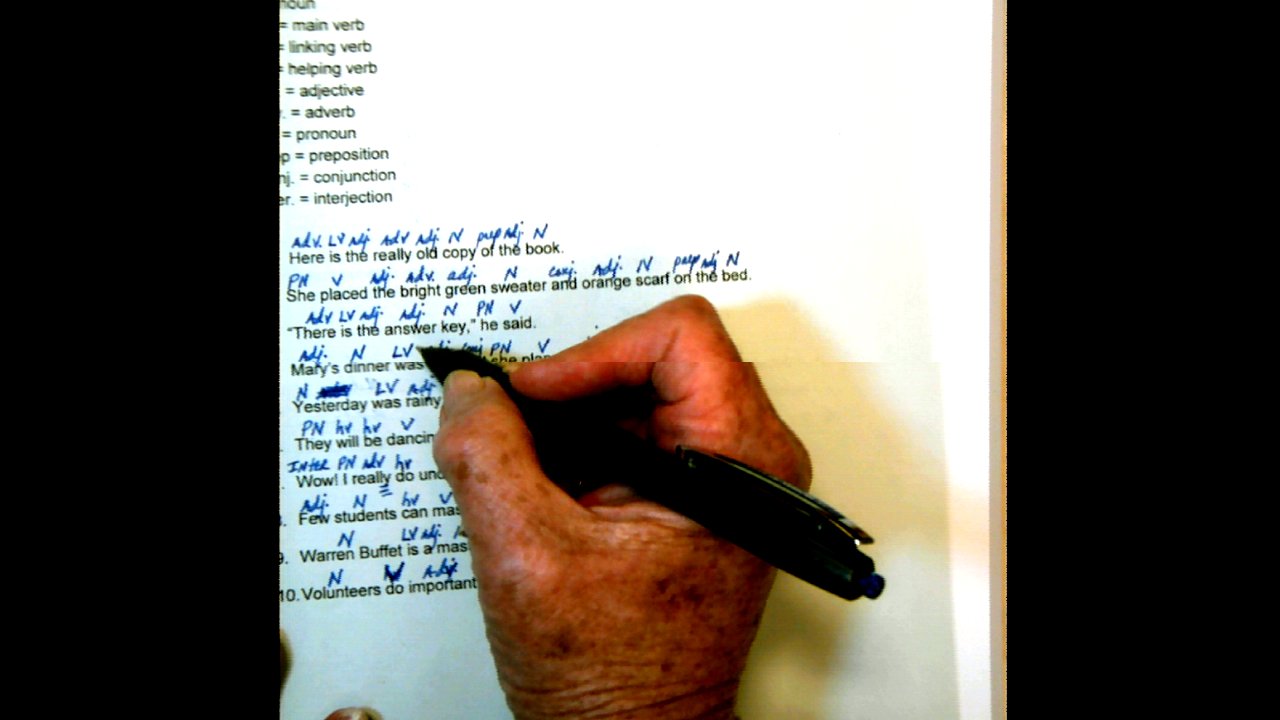 noun
= main verb
= linking verb
= helping verb
= adjective
. = adverb
= pronoun
p = preposition
nj. = conjunction
er. = interjection
Adv. LV Adj Adv Adj. N prep Adj. N
Here is the really old copy of the book.
PN V Adj. Adv. adj. N conj. Adj. N prep Adj N
She placed the bright green sweater and orange scarf on the bed.
Adv LV adj. Adj. N PN V
"There is the answer key," he said.
Adj. N LV conj PN V
Mary's dinner was she
N LV Adj
Yesterday was rainy
PN hv hv V
They will be dancin
Inter PN Adv hv
Wow! I really do
Adj. N hv V
Few students can mas
N LV adj.
9. Warren Buffet is a mas
N V Adj.
10. Volunteers do important